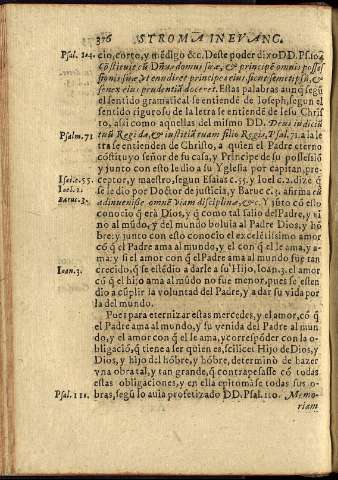 276 STROMA IN EVANC.
Psal. 104. cio, corto, y mẽdigo &c. Deste poder dixo DD. Ps. 104
Cõstituit eũ Dñũ domus suæ, & principẽ omnis posses
sionis suæ Vt erudiret principes eius, sicut semetipsũ, &
senex eius prudentiã doceret. Estas palabras aunq̃ segũ
el sentido gramatical se entiendẽ de Ioseph, segun el
sentido riguroso de la letra se entiendẽ de Iesu Christo
to, asi como aquellas del mismo DD. Deus iudiciũ
Psalm. 71 tuũ Regi da, & iustitiã tuam filio Regis, Psal. 71. a la le
tra se entienden de Christo, a quien el Padre eterno
cõstituyo señor de su casa, y Principe de su possessiõ
y junto con esto le dio a su Yglesia por capitan, pre-
Isai. c. 55. ceptor, y maestro, segun Esaias c. 55. y Ioel c. 2. dize q̃
Ioel. 2. se le dio por Doctor de justicia, y Baruc c. 3. afirma eũ
Baruc. 3. adinuenisse omnẽ viam disciplinæ, &c. Y jũto cõ esto
conocio q̃ era Dios, y q̃ como tal salio del Padre, y vi
no al mũdo, y del mundo boluia al Padre Dios, y hõ
bre: y junto con esto conocio el excelẽtissimo amor
cõ q̃ el Padre ama al mundo, y el con q̃ el le ama, y a-
ma: y si el amor con q̃ el Padre ama al mundo fue tan
Ioan. 3. crecido, q̃ se estẽdio a darle a su Hijo, Ioan. 3. el amor
cõ q̃ el hijo ama al mũdo no fue menor, pues se esten
dio a cũplir la voluntad del Padre, y a dar su vida por
la del mundo.
Pues para eternizar estas mercedes, y el amor, cõ q̃
el Padre ama al mundo, y su venida del Padre al mun
do, y el amor con q̃ el le ama, y correspõder con la o-
bligaciõ, q̃ tiene a ser quien es, scilicet Hijo de Dios, y
Dios, y hijo del hõbre, y hõbre, determinò de hazer
vna obra tal, y tan grande, q̃ contrapesasse cõ todas
estas obligaciones, y en ella epitomase todas sus o-
Psal. 111. bras, segũ lo auia profetizado DD. Psal. 110. Memo-
riam